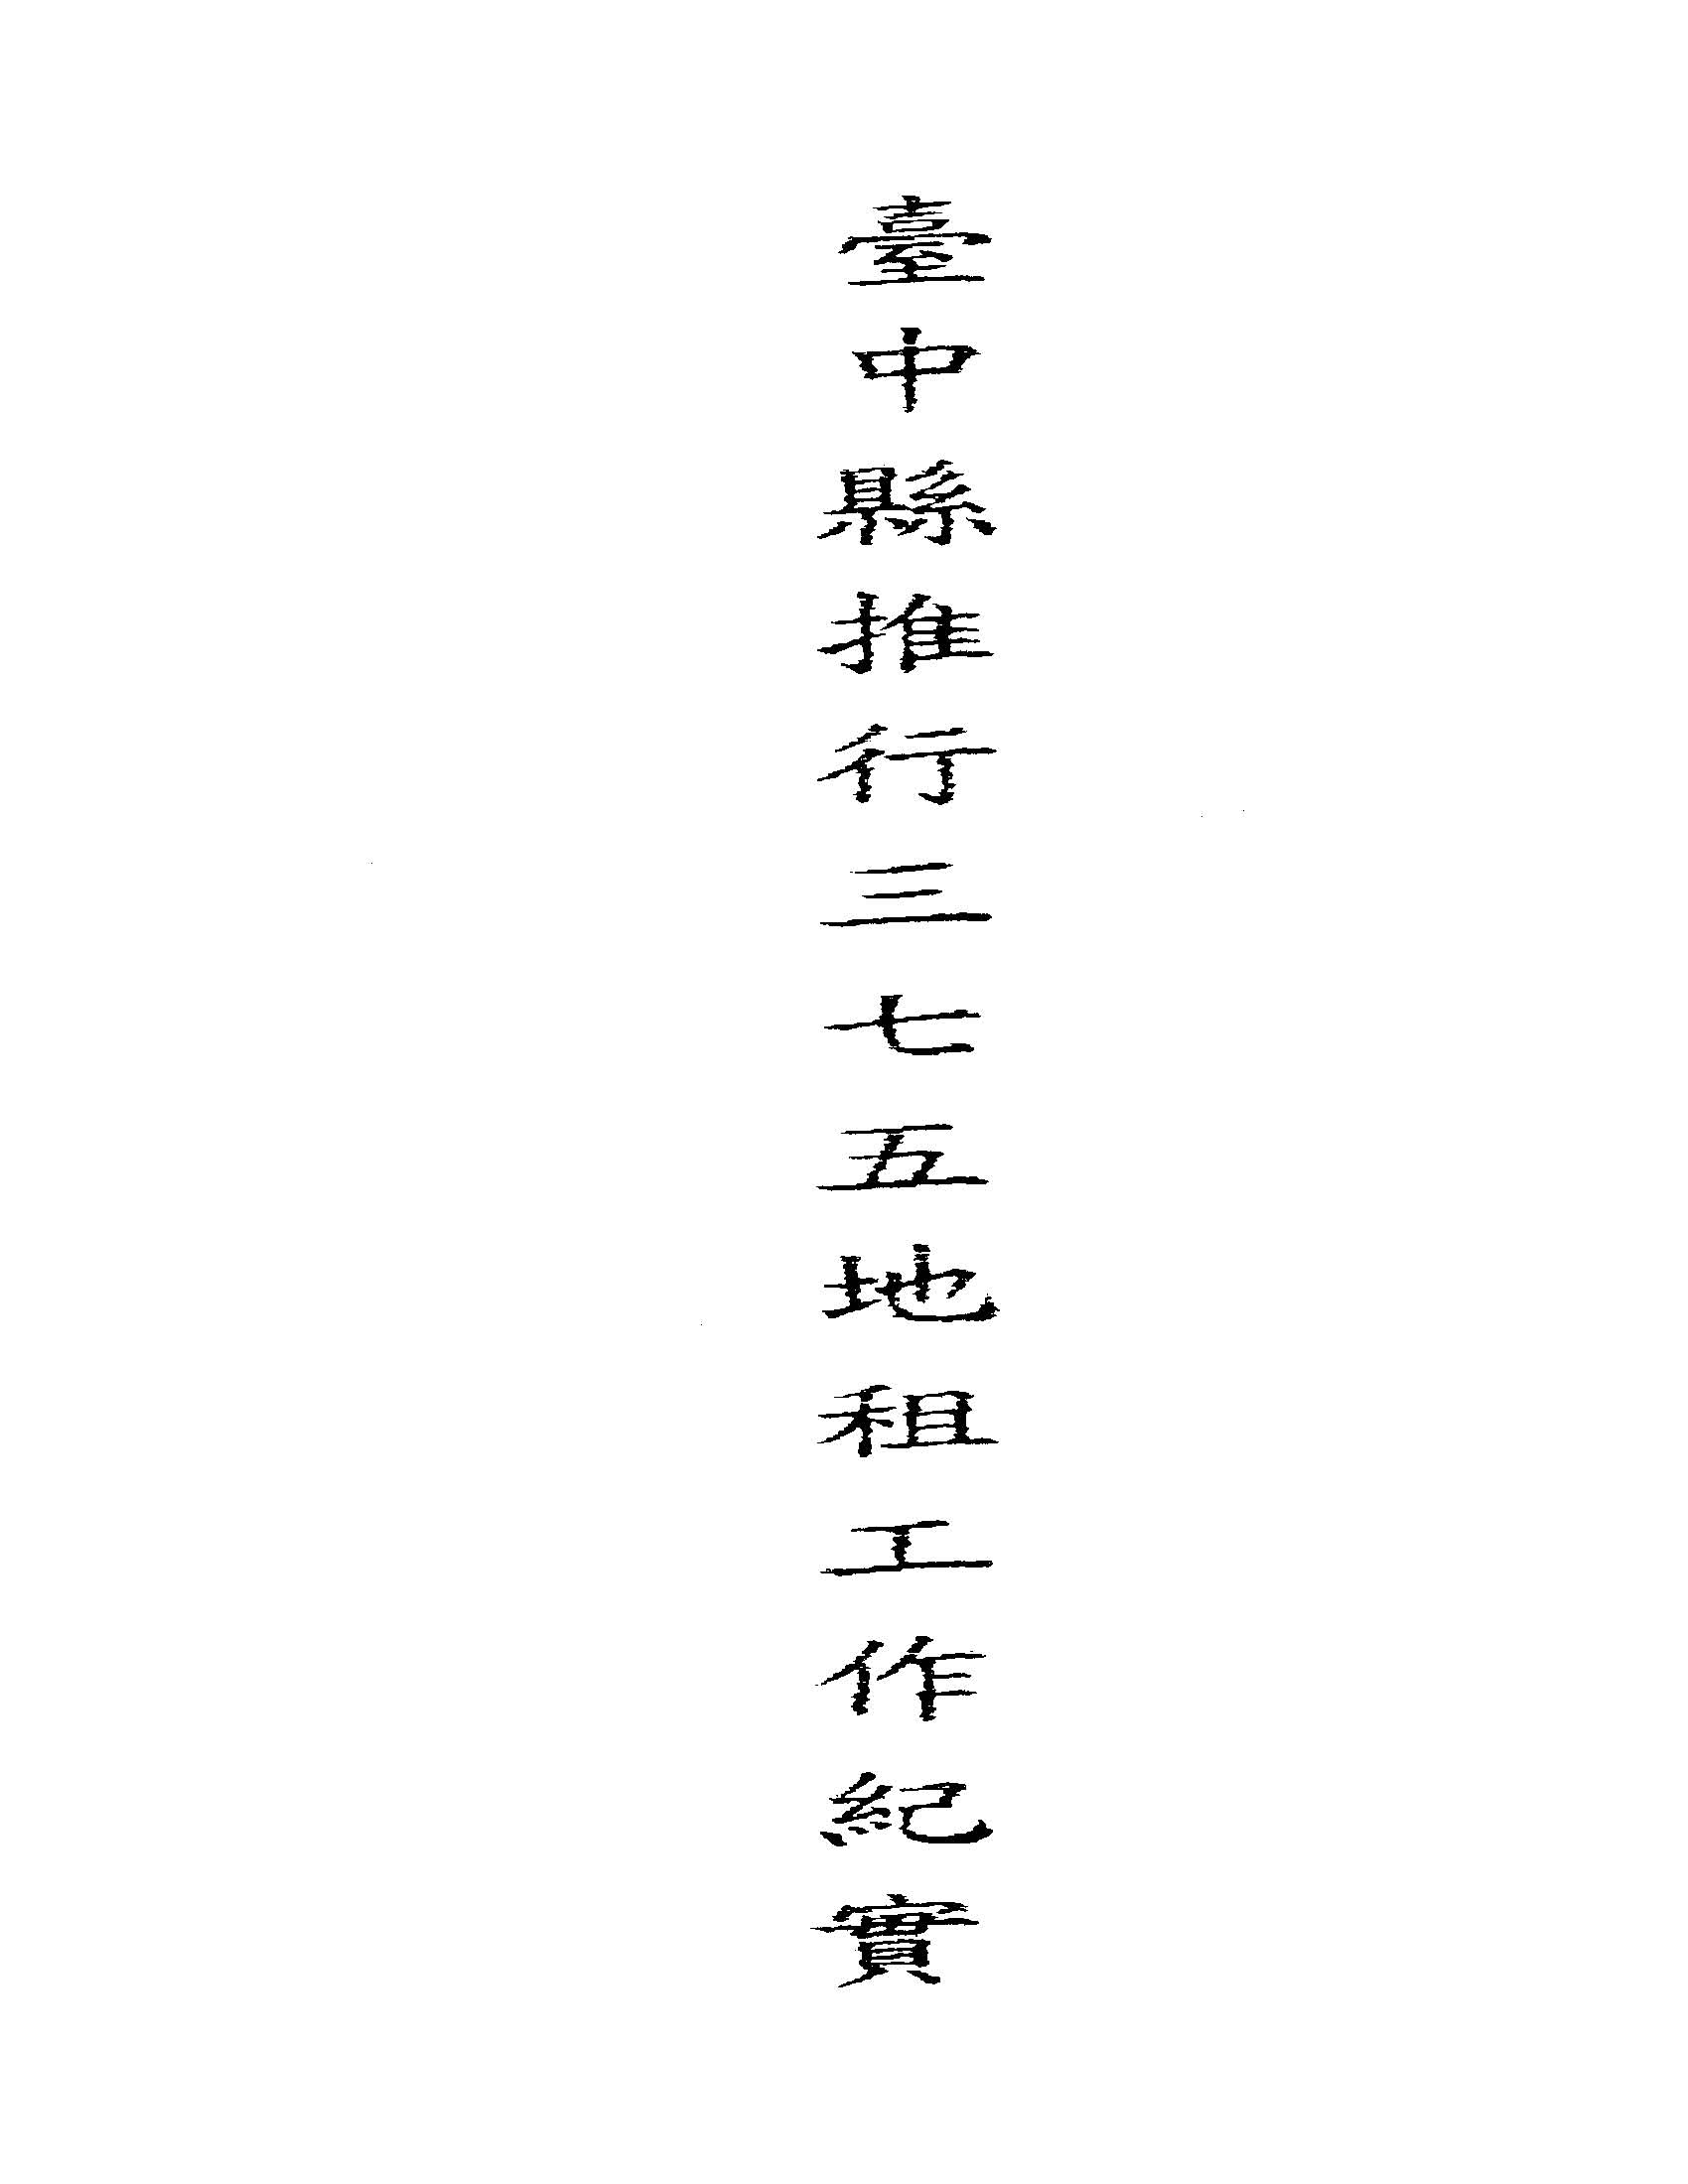 臺中縣推行三七五地租工作紀實